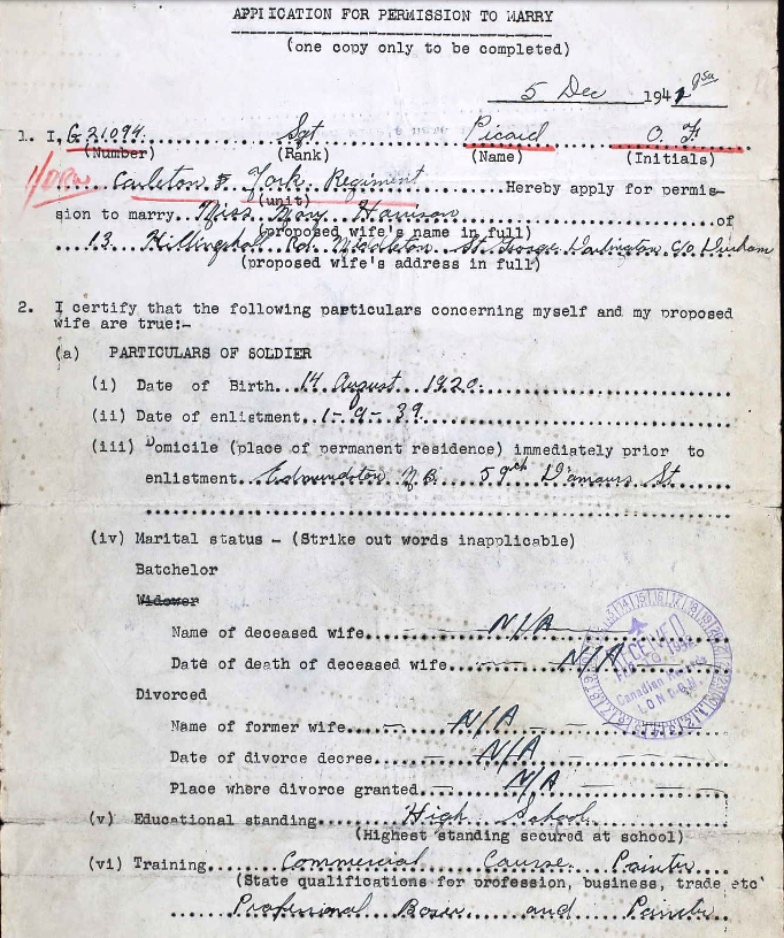 APPLICATION FOR PERMISSION TO MARRY
(one copy only to be completed)
5 Dec 1941
1. I, G 21094. Sgt Picard O. F
(Number) (Rank) (Name) (Initials)
Carleton & York Regiment Hereby apply for permis-
(unit)
sion to marry Miss Mary Harrison of
(proposed wife's name in full)
13 Rd. Middleton St George Darlington C/o Durham
(proposed wife's address in full)
2. I certify that the following particulars concerning myself and my proposed
wife are true:-
(a) PARTICULARS OF SOLDIER
(i) Date of Birth 14 August 1920.
(ii) Date of enlistment 1-9-39.
(iii) Domicile (place of permanent residence) immediately prior to
enlistment Edmundston N.B. 59 St
(iv) Marital status - (Strike out words inapplicable)
Batchelor
Widower
Name of deceased wife N/A
Date of death of deceased wife N/A
Divorced
Name of former wife N/A
Date of divorce decree N/A
Place where divorce granted N/A
(v) Educational standing High School
(Highest standing secured at school)
(vi) Training Commercial Course Painter
(State qualifications for profession, business, trade etc'
Professional Boxer and Painter
RECEIVED
Canadian Records
LONDON